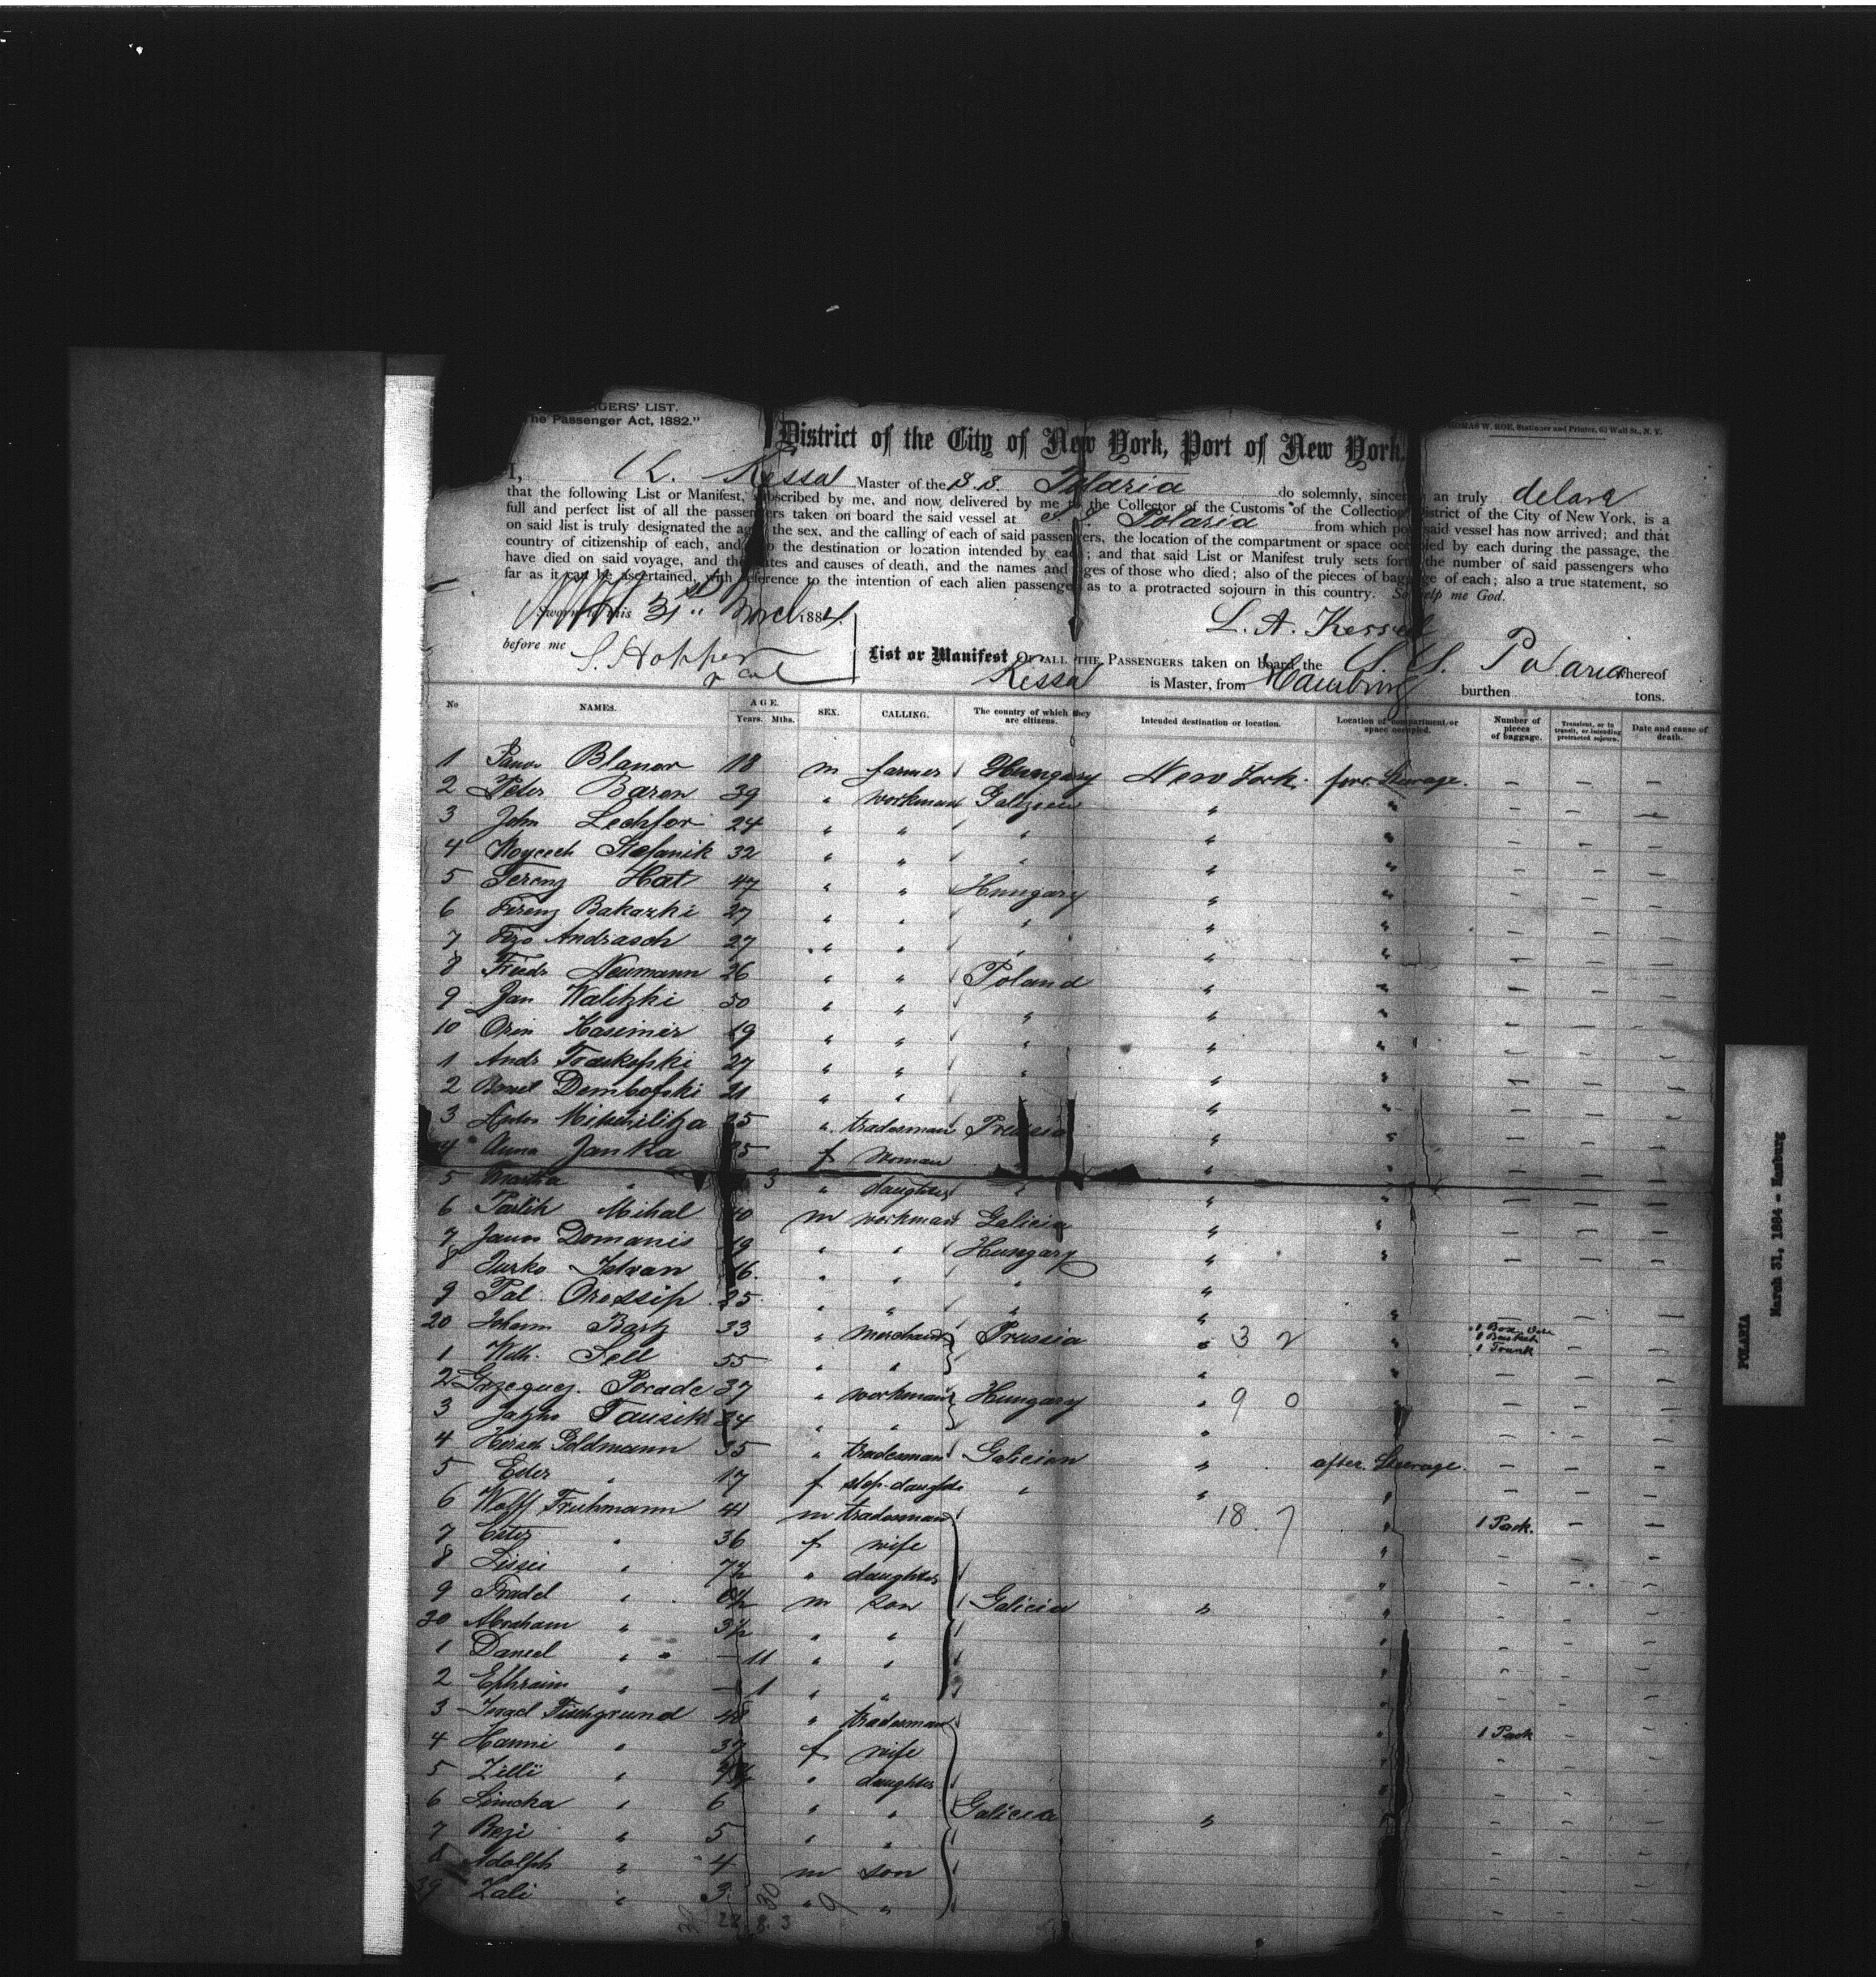 GERS' LIST.
he Passenger Act, 1882."
THOMAS W. ROE, Stationer and Printer, 63 Wall St., N. Y.
District of the City of New York, Port of New York.
I, Kessal Master of the S. S. Polaria do solemnly, sincerely an truly delara
that the following List or Manifest, subscribed by me, and now, delivered by me to the Collector of the Customs of the Collection District of the City of New York, is a
full and perfect list of all the passengers taken on board the said vessel at S. S. Polaria from which port said vessel has now arrived; and that
on said list is truly designated the age, the sex, and the calling of each of said passengers, the location of the compartment or space occupied by each during the passage, the
country of citizenship of each, and also the destination or location intended by each; and that said List or Manifest truly sets forth the number of said passengers who
have died on said voyage, and the dates and causes of death, and the names and ages of those who died; also of the pieces of baggage of each; also a true statement, so
far as it can be ascertained, with reference to the intention of each alien passenger as to a protracted sojourn in this country. So help me God.
Sworn to this 31st March 1884
L. A. Kessal
before me S. Hopper
List or Manifest OF ALL THE PASSENGERS taken on board the S. S. Polaria whereof
Kessal is Master, from Hamburg burthen tons.
No NAMES. AGE. Years. Mths. SEX. CALLING. The country of which they are citizens. Intended destination or location. Location of compartment or space occupied. Number of pieces of baggage. Transient, or in transit, or intending protracted sojourn. Date and cause of death.
1 Blanar 18 m farmer Hungary New York. forw. Steerage. — — —
2 Peter Baron 39 " workman Galizien " " — — —
3 John Lechfor 24 " " " " " — — —
4 Woycech Stefanik 32 " " " " " — — —
5 Ferenz Hat 47 " " Hungary " " — — —
6 Ferenz Bakazki 27 " " " " " — — —
7 Andrasch 27 " " " " " — — —
8 Friedr Neumann 26 " " Poland " " — — —
9 Jan Walitzki 30 " " " " " — — —
10 Kasimir 19 " " " " " — — —
1 Andr 27 " " " " " — — —
2 Dembofski 21 " " " " " — — —
3 25 " tradesman Prussia " " — — —
4 Anna Janka 25 f woman " " " — — —
5 Martha " 3 " daughter " " " — — —
6 Mihal 40 m workman Galicia " " — — —
7 Janos Domanis 19 " " Hungary " " — — —
8 Jurko Istvan 16 " " " " " — — —
9 Pal 25 " " " " " — — —
20 Johann Bartz 33 " merchant Prussia " 3 2 " 1 Box 1 Basket 1 Trunk — —
1 Wilh. Sell 55 " " " " — — —
2 Porade 37 " workman Hungary " 9 0 " — — —
3 Tausik 24 " " " " — — —
4 Hersch Goldmann 35 " tradesman Galicien " after. Steerage. — — —
5 Ester " 17 f step-daughter " " " — — —
6 Wolff Fruhmann 41 m tradesman 18 7 " 1 Pack. — —
7 Ester " 36 f wife " — — —
8 " 7½ " daughter " — — —
9 Fradel " 6½ m son Galicia " " — — —
30 Abraham " 3½ " " " — — —
1 Daniel " — 11 " " " — — —
2 Ephraim " — 1 " " " — — —
3 Israel Fischgrund 48 " tradesman " 1 Pack — —
4 Hanni " 37 f wife " — — —
5 Zilli " " daughter " — — —
6 Simcha " 6 " " Galicia " " — — —
7 " 5 " " — — —
8 Adolph " 4 m son — — —
39 Zali " 3 " " — — —
30 30 9
28. 8. 3
POLARIA
March 31, 1884 - Hamburg